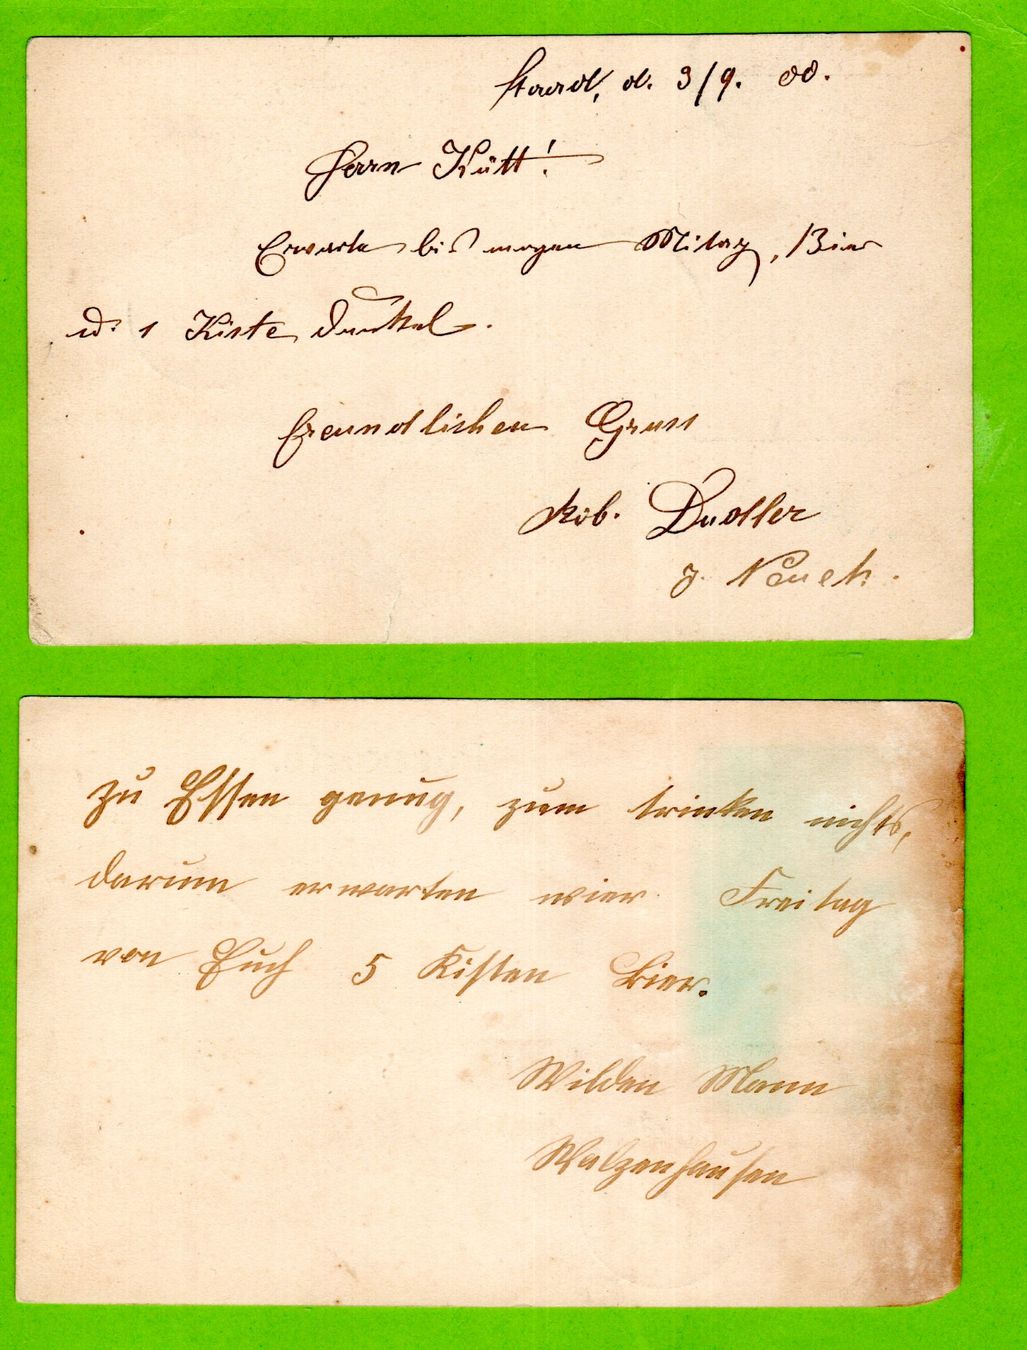 Staad, d. 3/9. 00.
Herrn Kütt!
Erwarte bis morgen Mitag, Bier
u. 1 Kiste Dunkel.
freundlichen Gruss
Rob. Dudler
z.
zu Essen genug, zum trinken nichts,
darum erwarten wier Freitag
von Euch 5 Kisten Bier.
Wilden Mann
Walzenhausen